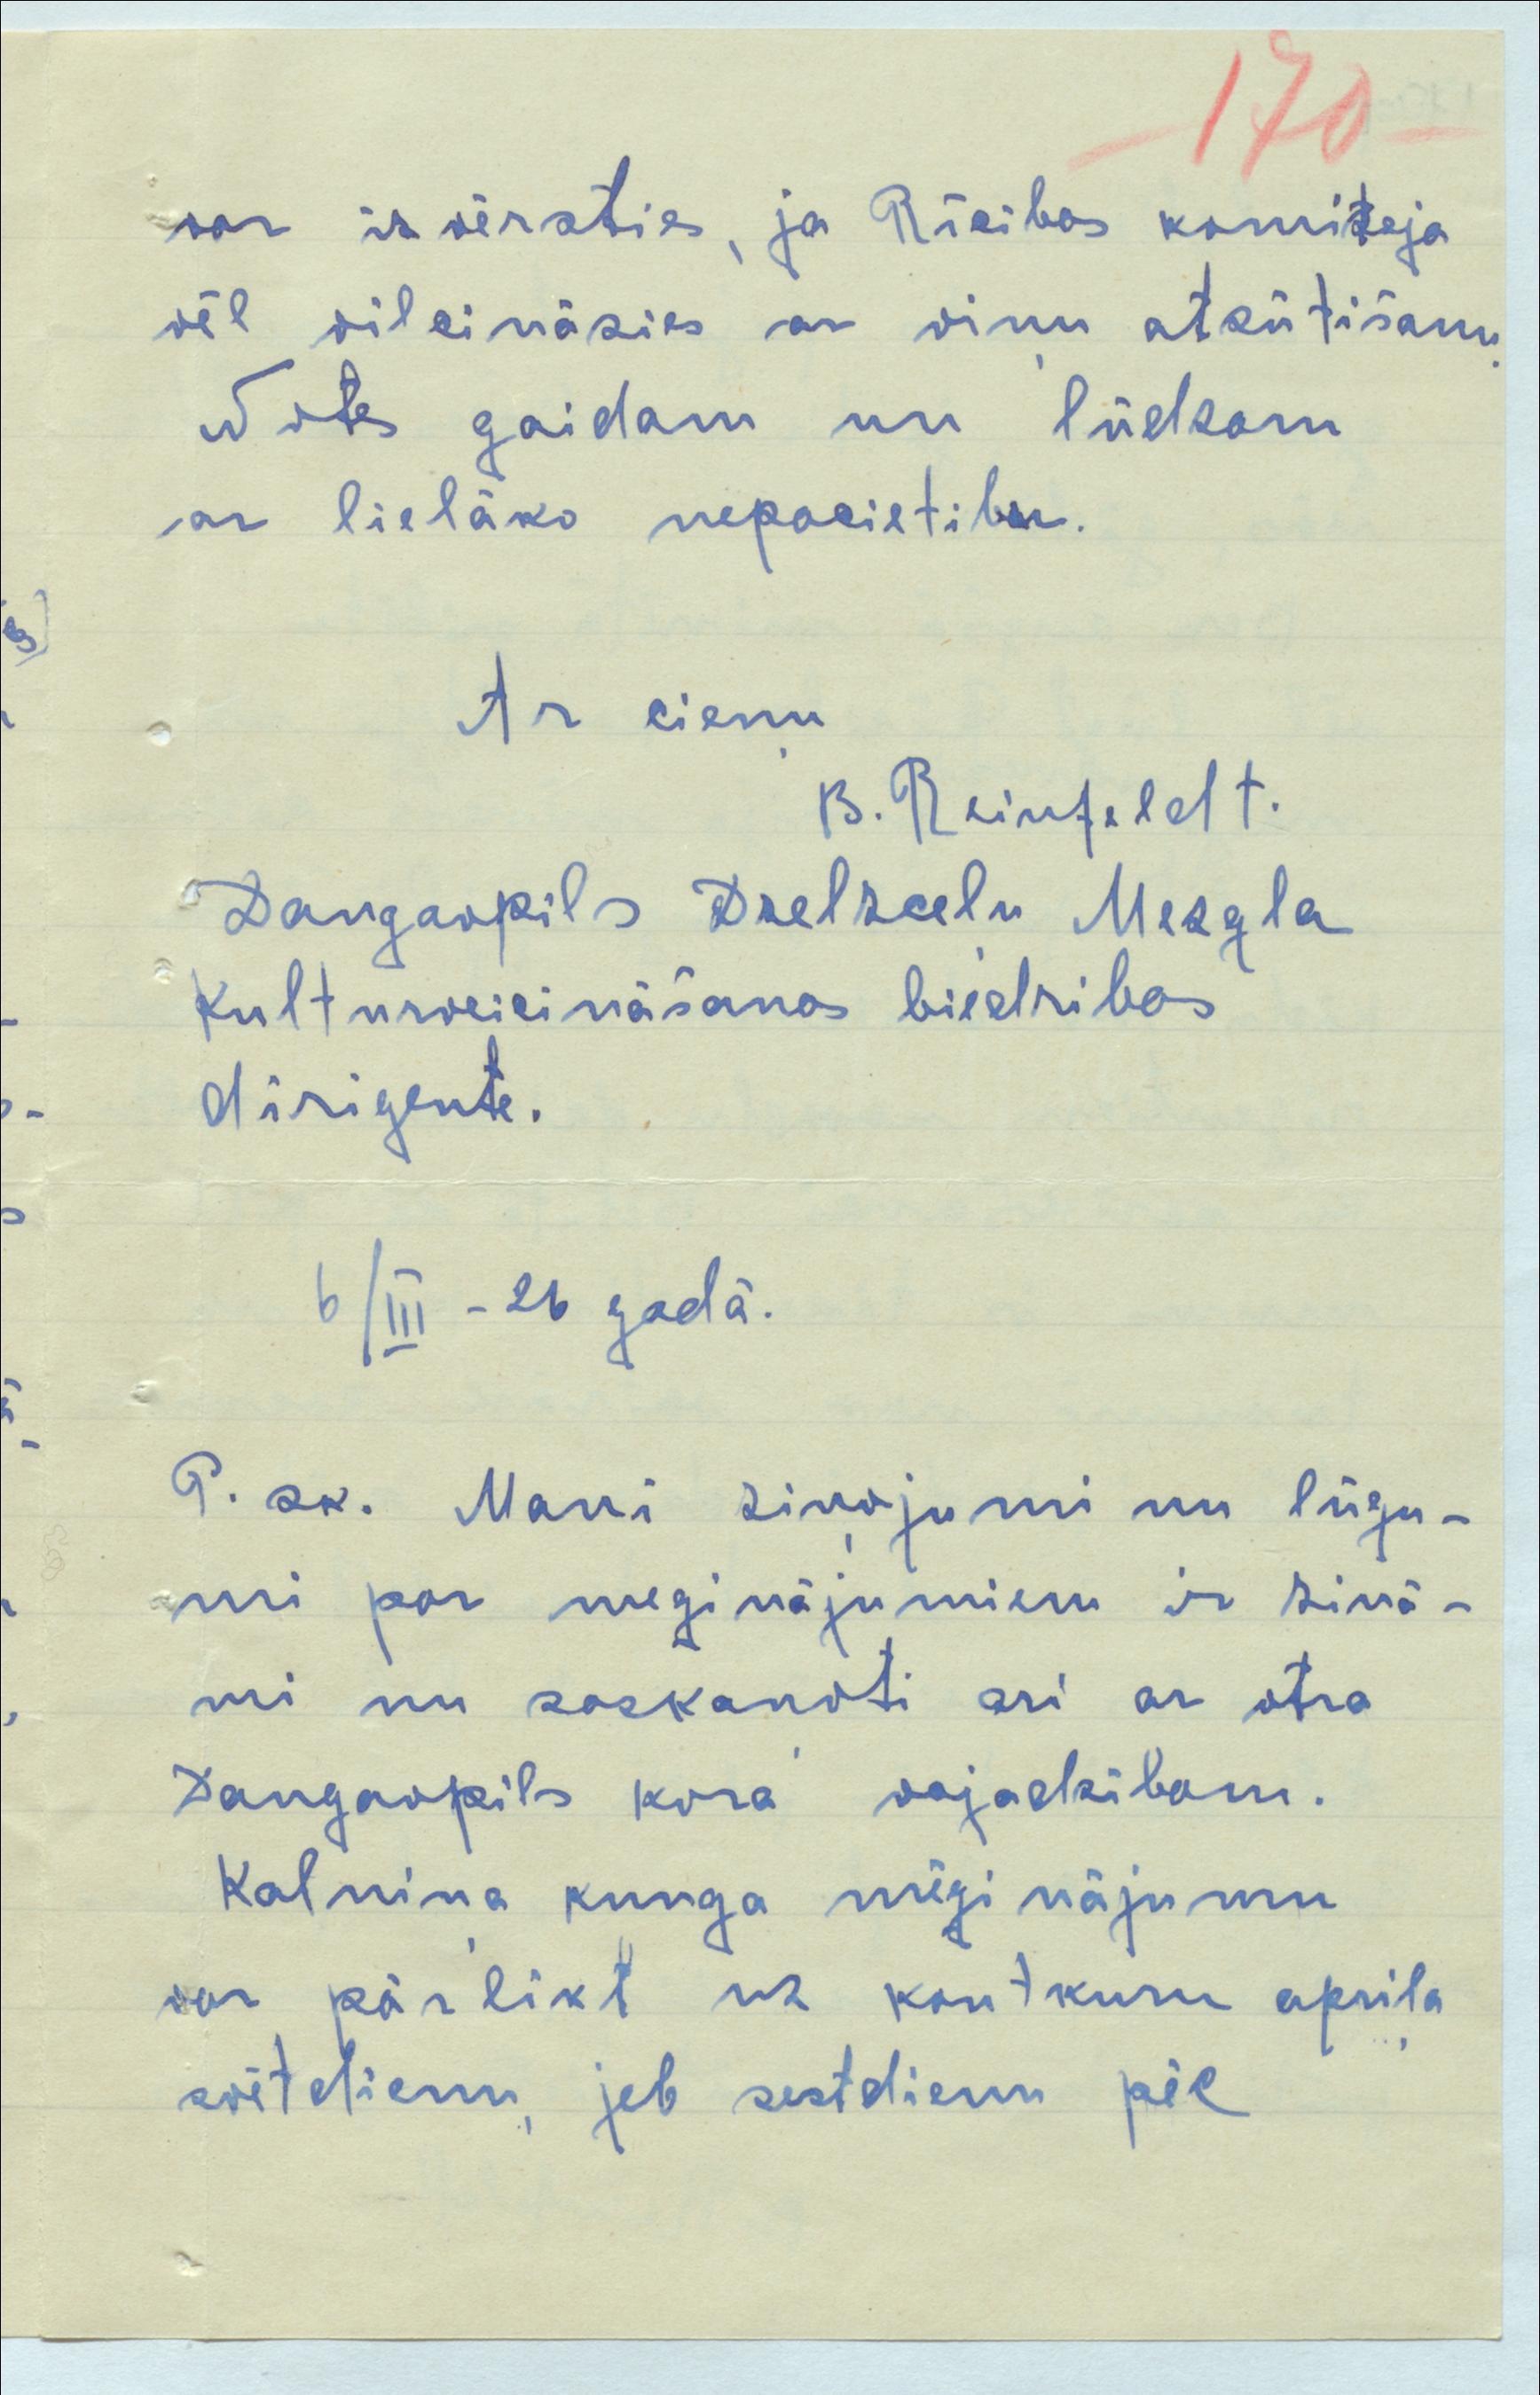 170
var izvērsties, ja Rīcibas komiteja
vēl vilcināsies ar viņu atsūtišanu.
Notes gaidam un lūdzam
ar lielāko nepacietibu.
Ar cieņu
B. Reinfeldt.
Daugavpils Dzelzceļu Mezgla
Kulturveicināšanas biedribas
dirigente.
6/III - 26 gadā.
P. sk. Mani ziņojumi un lūgu-
mi par meginājumiem ir zinā-
mi un saskaņoti ari ar otra
Daugavpils kora vajadzibam.
Kalniņa kunga mēginājumu
var pārlikt uz kautkuru apriļa
svētdienu, jeb sestdienu pēc